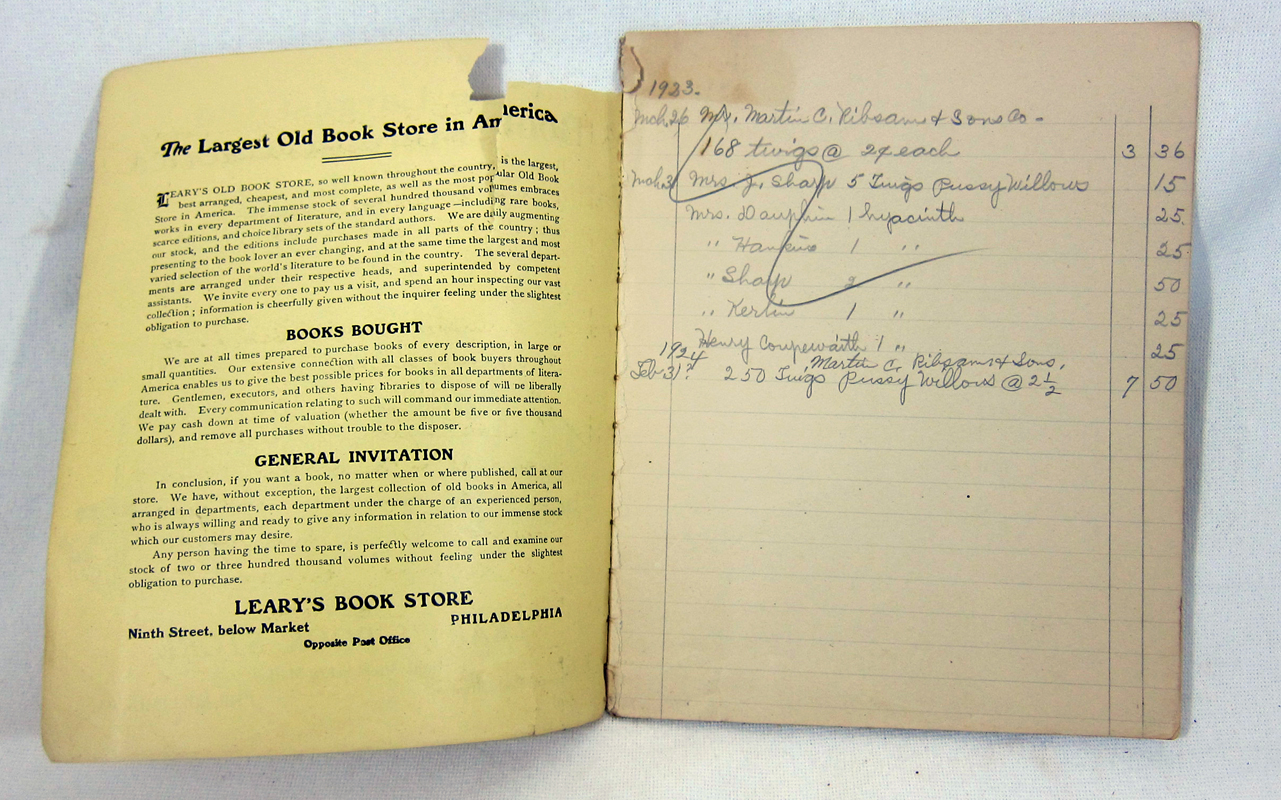 The Largest Old Book Store in America
LEARY'S OLD BOOK STORE, so well known throughout the country, is the largest,
best arranged, cheapest, and most complete, as well as the most popular Old Book
Store in America. The immense stock of several hundred thousand volumes embraces
works in every department of literature, and in every language—including rare books,
scarce editions, and choice library sets of the standard authors. We are daily augmenting
our stock, and the editions include purchases made in all parts of the country; thus
presenting to the book lover an ever changing, and at the same time the largest and most
varied selection of the world's literature to be found in the country. The several depart-
ments are arranged under their respective heads, and superintended by competent
assistants. We invite every one to pay us a visit, and spend an hour inspecting our vast
collection; information is cheerfully given without the inquirer feeling under the slightest
obligation to purchase.
BOOKS BOUGHT
We are at all times prepared to purchase books of every description, in large or
small quantities. Our extensive connection with all classes of book buyers throughout
America enables us to give the best possible prices for books in all departments of litera-
ture. Gentlemen, executors, and others having libraries to dispose of will be liberally
dealt with. Every communication relating to such will command our immediate attention.
We pay cash down at time of valuation (whether the amount be five or five thousand
dollars), and remove all purchases without trouble to the disposer.
GENERAL INVITATION
In conclusion, if you want a book, no matter when or where published, call at our
store. We have, without exception, the largest collection of old books in America, all
arranged in departments, each department under the charge of an experienced person,
who is always willing and ready to give any information in relation to our immense stock
which our customers may desire.
Any person having the time to spare, is perfectly welcome to call and examine our
stock of two or three hundred thousand volumes without feeling under the slightest
obligation to purchase.
LEARY'S BOOK STORE
Ninth Street, below Market PHILADELPHIA
Opposite Post Office
1923.
Mch. 26 Mr. Martin C. Ribsam & Sons Co-
168 twigs @ 2¢ each 3 36
Mch. 31 Mrs. J. Sharp 5 Twigs Pussy Willows 15
Mrs. Dauphin 1 hyacinth 25.
" Hankins 1 " 25
" Sharp 2 " 50
" Kerlin 1 " 25
Henry Coupewarth 1 " 25
1924 Martin C. Ribsam & Sons,
Feb. 31? 250 Twigs Pussy Willows @ 2½ 7 50